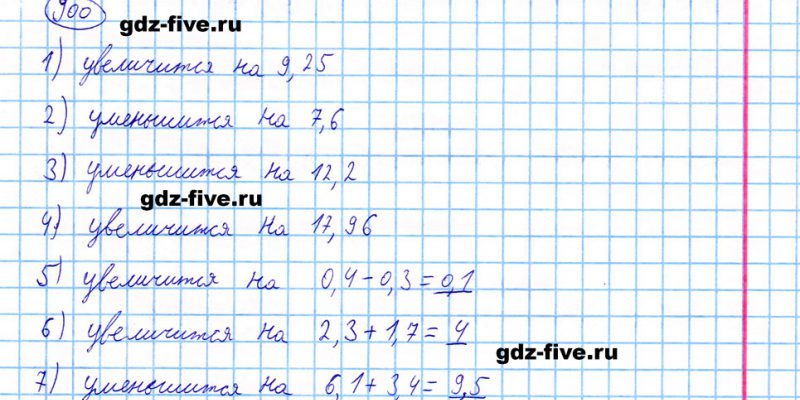 900
gdz-five.ru
1) увеличится на 9,25
2) уменьшится на 7,6
3) уменьшится на 12,2
gdz-five.ru
4) увеличится на 17,96
5) увеличится на 0,4-0,3=0,1
6) увеличится на 2,3+1,7=4
gdz-five.ru
7) уменьшится на 6,1+3,4=9,5